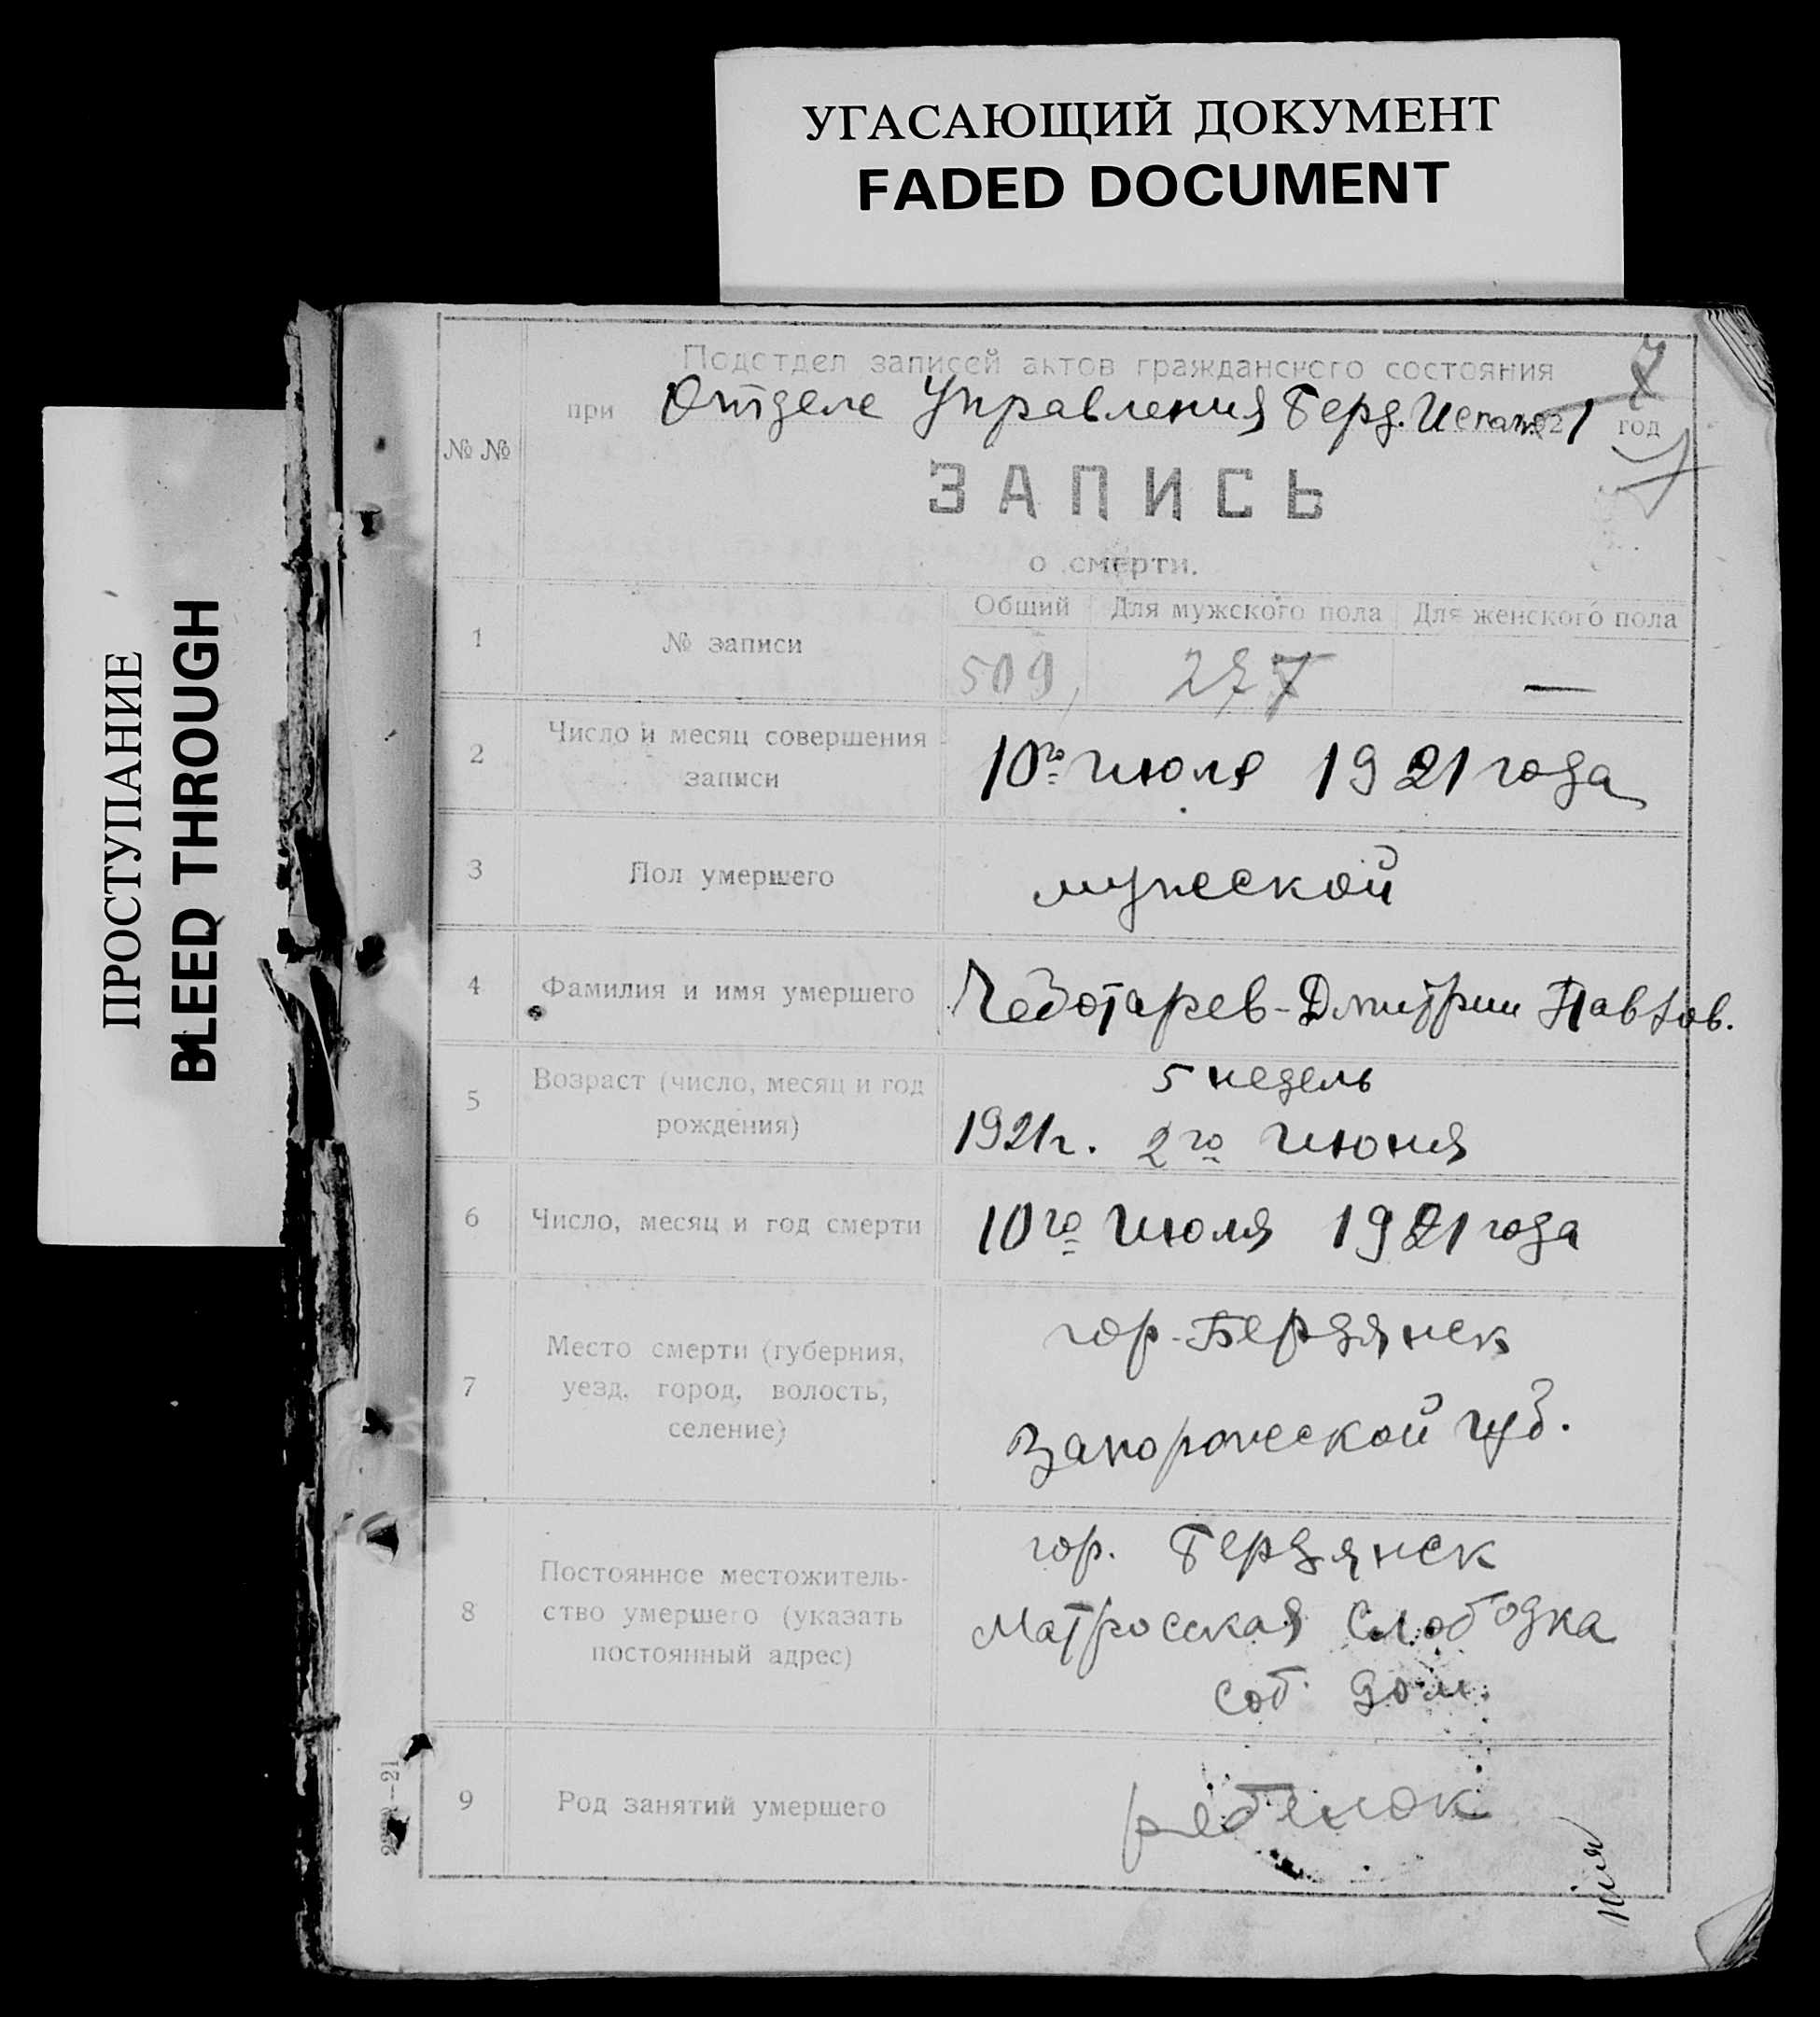 УГАСАЮЩИЙ ДОКУМЕНТ
FADED DOCUMENT
ПРОСТУПАНИЕ
BLEED THROUGH
Подотдел записей актов гражданского состояния
при Отделе Управления Берд. 1921 год
№ №
ЗАПИСЬ
о смерти.
Общий Для мужского пола Для женского пола
1 № записи 509, 277 —
2 Число и месяц совершения записи 10го июля 1921 года
3 Пол умершего мужеской
4 Фамилия и имя умершего Чеботарев-Дмитрии Павлов.
5 Возраст (число, месяц и год рождения) 5 недель
1921г. 2го июня
6 Число, месяц и год смерти 10го июля 1921 года
7 Место смерти (губерния, уезд, город, волость, селение) гор-Бердянск
Запорожеской губ.
8 Постоянное местожитель-
ство умершего (указать
постоянный адрес)
гор. Бердянск
Матросская Слободка
соб. дом.
9 Род занятий умершего ребенок